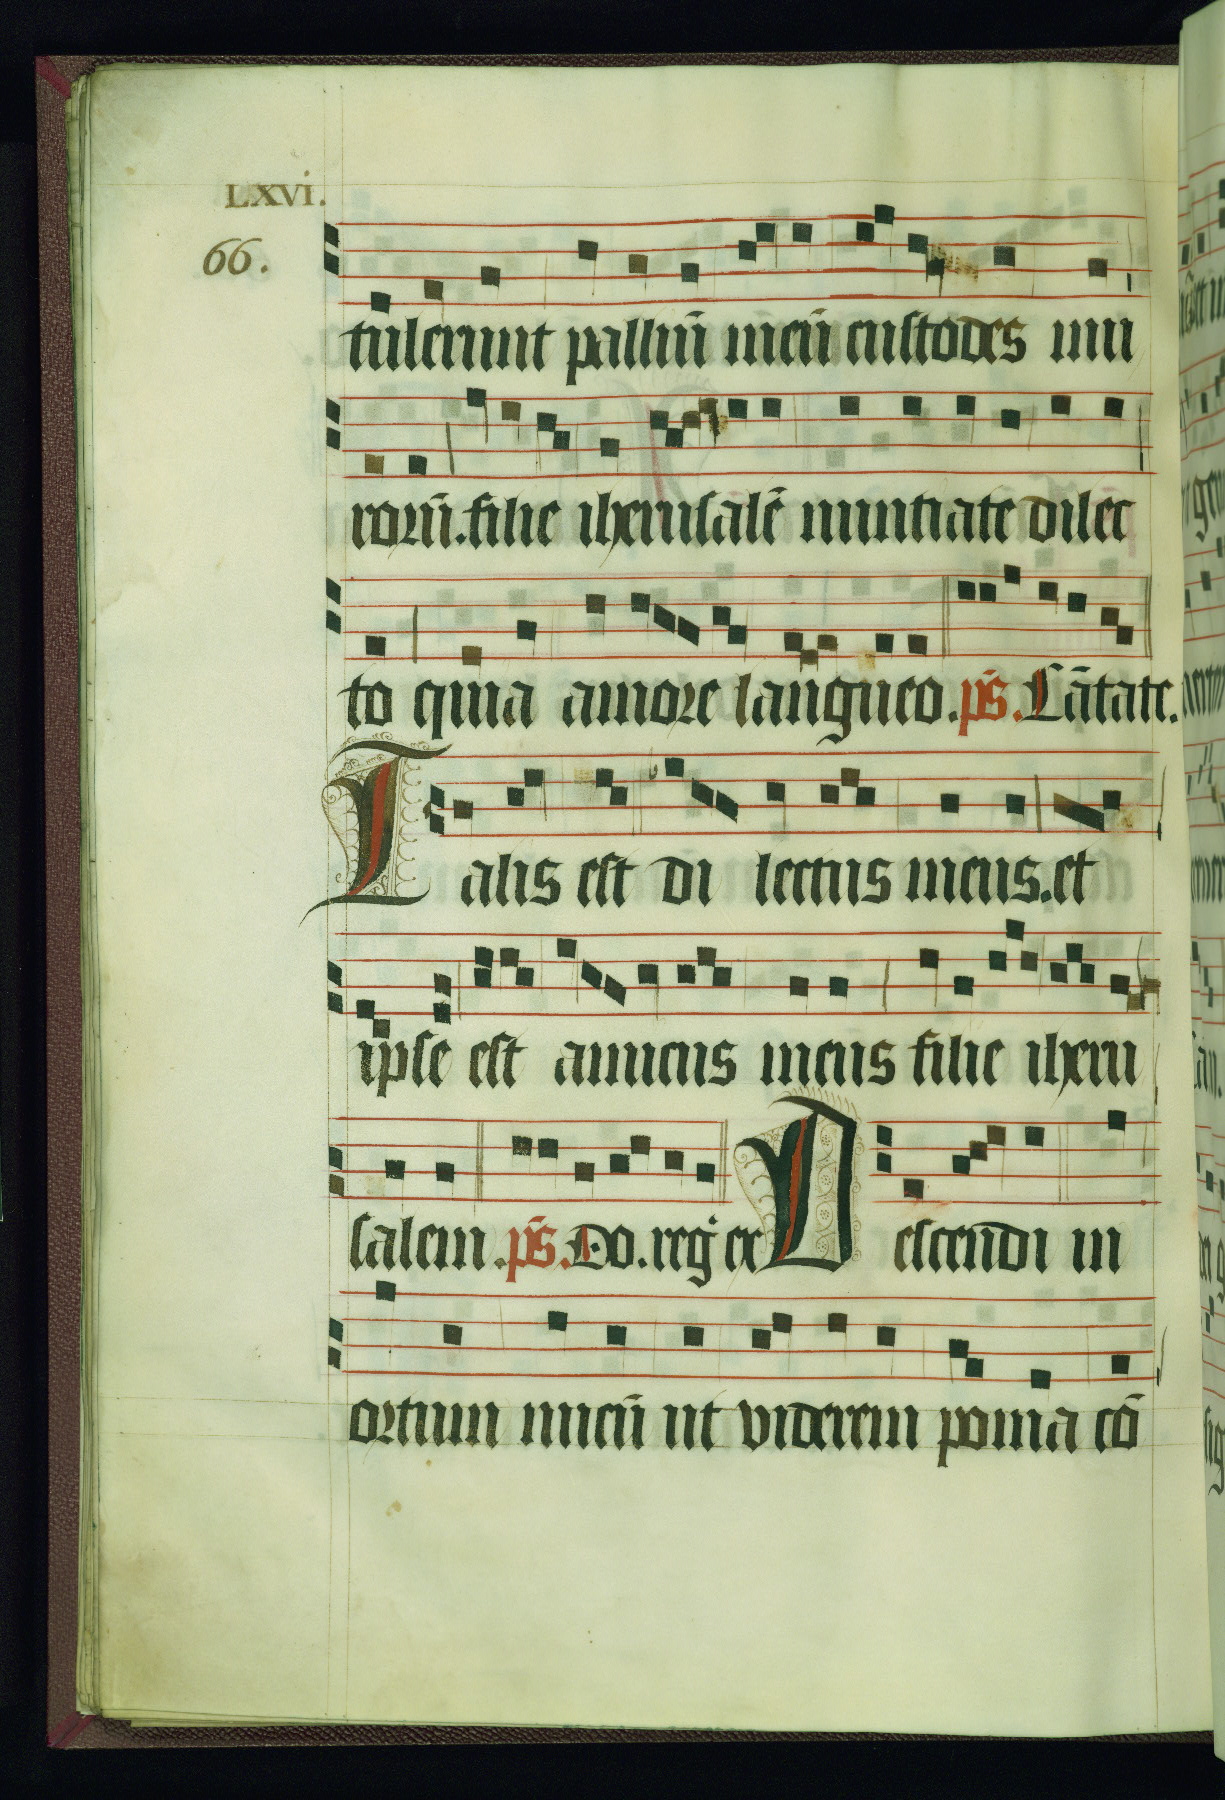 LXVI.
66.
tulerunt palliū meū custodes mu
rorū. filie iherusalē nuntiate dilec
to quia amore langueo. ps̄. Cātate.
Talis est di lectus meus. et
ipse est amicus meus filie iheru
salem. ps̄. Do. reg̓ ex Descendi in
ortum meū ut viderem poma cō